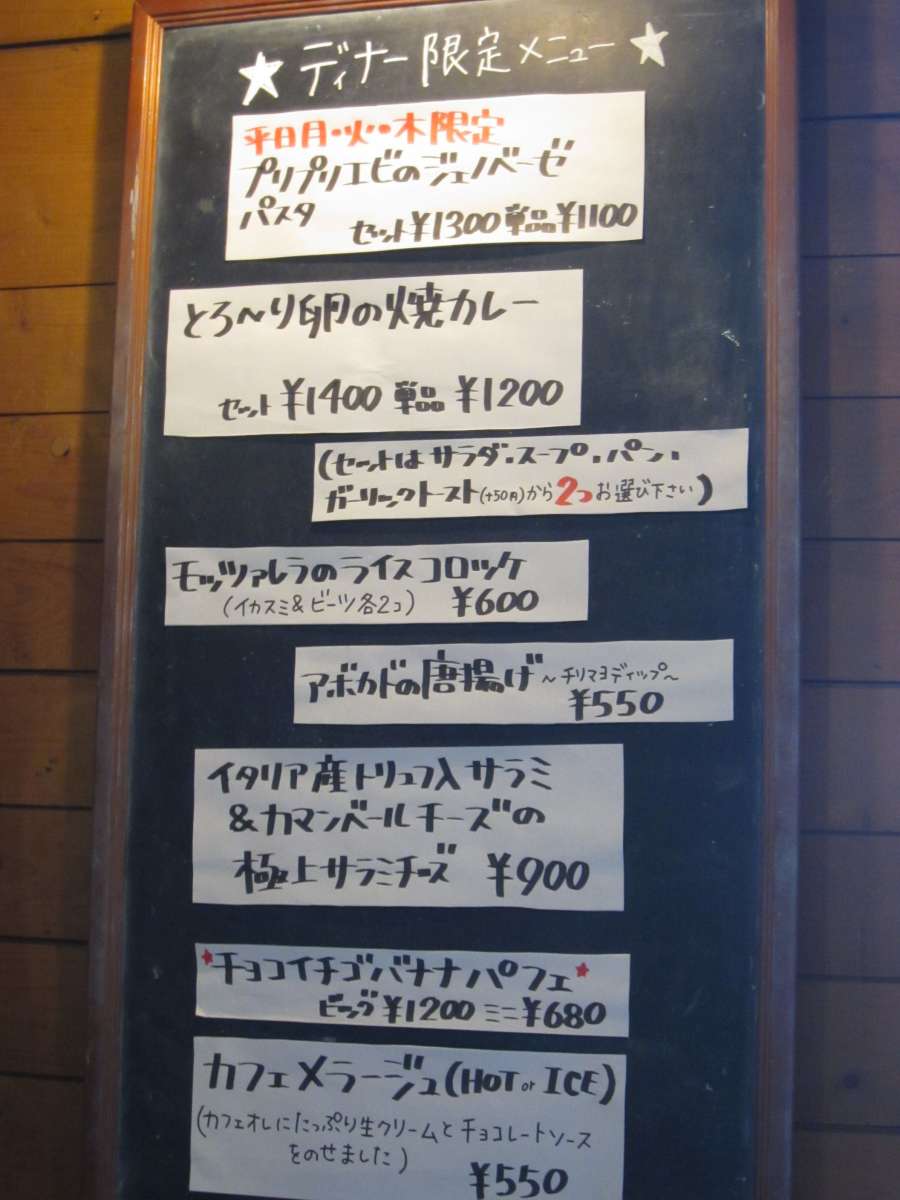 ★ディナー限定メニュー★
平日月・火・木限定
プリプリエビのジェノベーゼ
パスタ セット¥1300 単品¥1100
とろ〜り卵の焼カレー
セット ¥1400 単品 ¥1200
(セットは サラダ・スープ・パン・
ガーリックトースト(+50円)から2つお選び下さい)
モッツァレラのライスコロッケ
(イカスミ&ビーツ各2コ) ¥600
アボカドの唐揚げ〜チリマヨディップ〜
¥550
イタリア産トリュフ入サラミ
&カマンベールチーズの
極上サラミチーズ ¥900
★チョコイチゴバナナパフェ★
ビッグ¥1200 ミニ¥680
カフェメラージュ(HOT or ICE)
(カフェオレにたっぷり生クリームとチョコレートソース
をのせました)
¥550